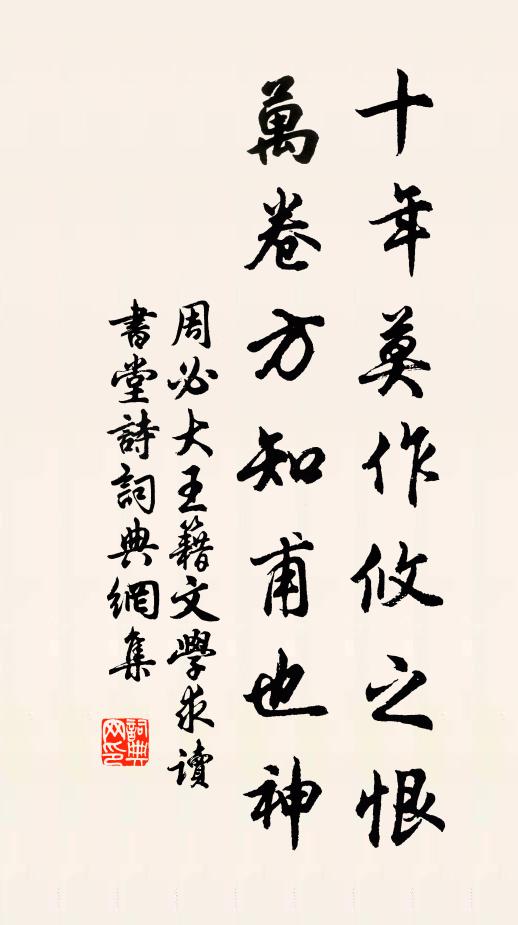 十年莫作攸之恨
萬卷方知甫也神
周必大王籍文學求讀
書堂詩詞典網集
詞典
网印